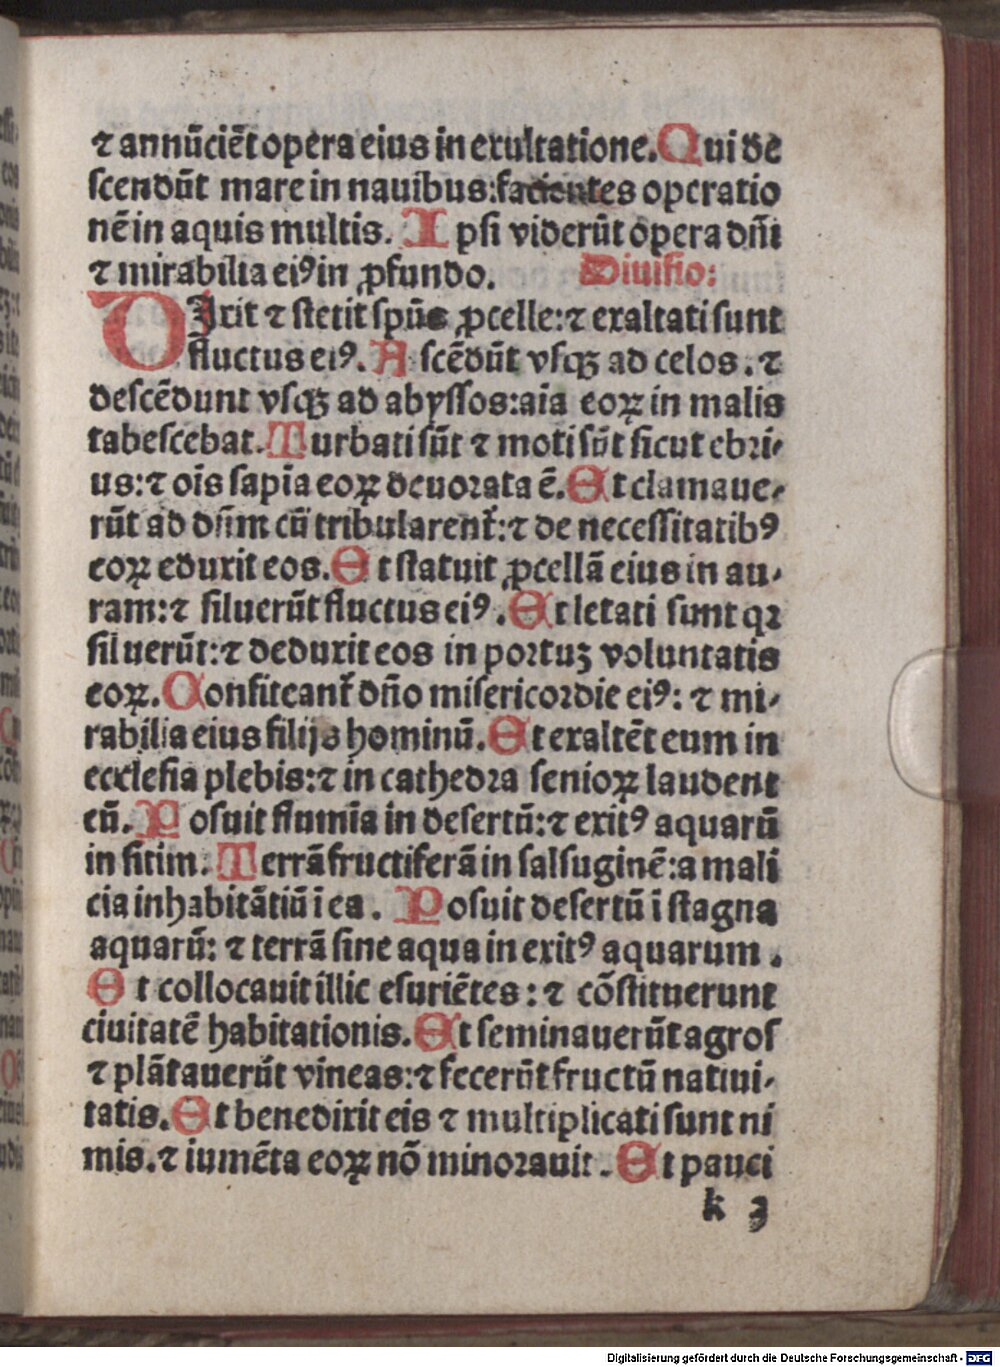 ⁊ annūciēt opera eius in exultatione. Qui de
scendūt mare in nauibus: facientes operatio
nē in aquis multis. Ipsi viderūt opera dn̄i
⁊ mirabilia eiꝰ in ꝓfundo. Diuisio:
DIxit ⁊ stetit spūs ꝓcelle: ⁊ exaltati sunt
fluctus eiꝰ. Ascēdūt vsqꝫ ad celos. ⁊
descēdunt vsqꝫ ad abyssos: aīa eoꝝ in malis
tabescebat. Turbati sūt ⁊ moti sūt sicut ebri-
us: ⁊ oīs sapīa eoꝝ deuorata ē. Et clamaue-
rūt ad dn̄m cū tribularent̄: ⁊ de necessitatibꝰ
eoꝝ eduxit eos. Et statuit ꝓcellā eius in au-
ram: ⁊ siluerūt fluctus eiꝰ. Et letati sunt qꝛ
siluerūt: ⁊ deduxit eos in portuꝫ voluntatis
eoꝝ. Confiteant̄ dn̄o misericordie eiꝰ: ⁊ mi-
rabilia eius filijs hominū. Et exaltēt eum in
ecclesia plebis: ⁊ in cathedra senioꝝ laudent
eū. Posuit flumīa in desertū: ⁊ exitꝰ aquarū
in sitim. Terrā fructiferā in salsuginē: a mali
cia inhabitātiū i ea. Posuit desertū i stagna
aquarū: ⁊ terrā sine aqua in exitꝰ aquarum.
Et collocauit illic esuriētes: ⁊ cōstituerunt
ciuitatē habitationis. Et seminauerūt agros
⁊ plātauerūt vineas: ⁊ fecerūt fructū natiui-
tatis. Et benedixit eis ⁊ multiplicati sunt ni
mis. ⁊ iumēta eoꝝ nō minorauit. Et pauci
k 3
Digitalisierung gefördert durch die Deutsche Forschungsgemeinschaft - DFG